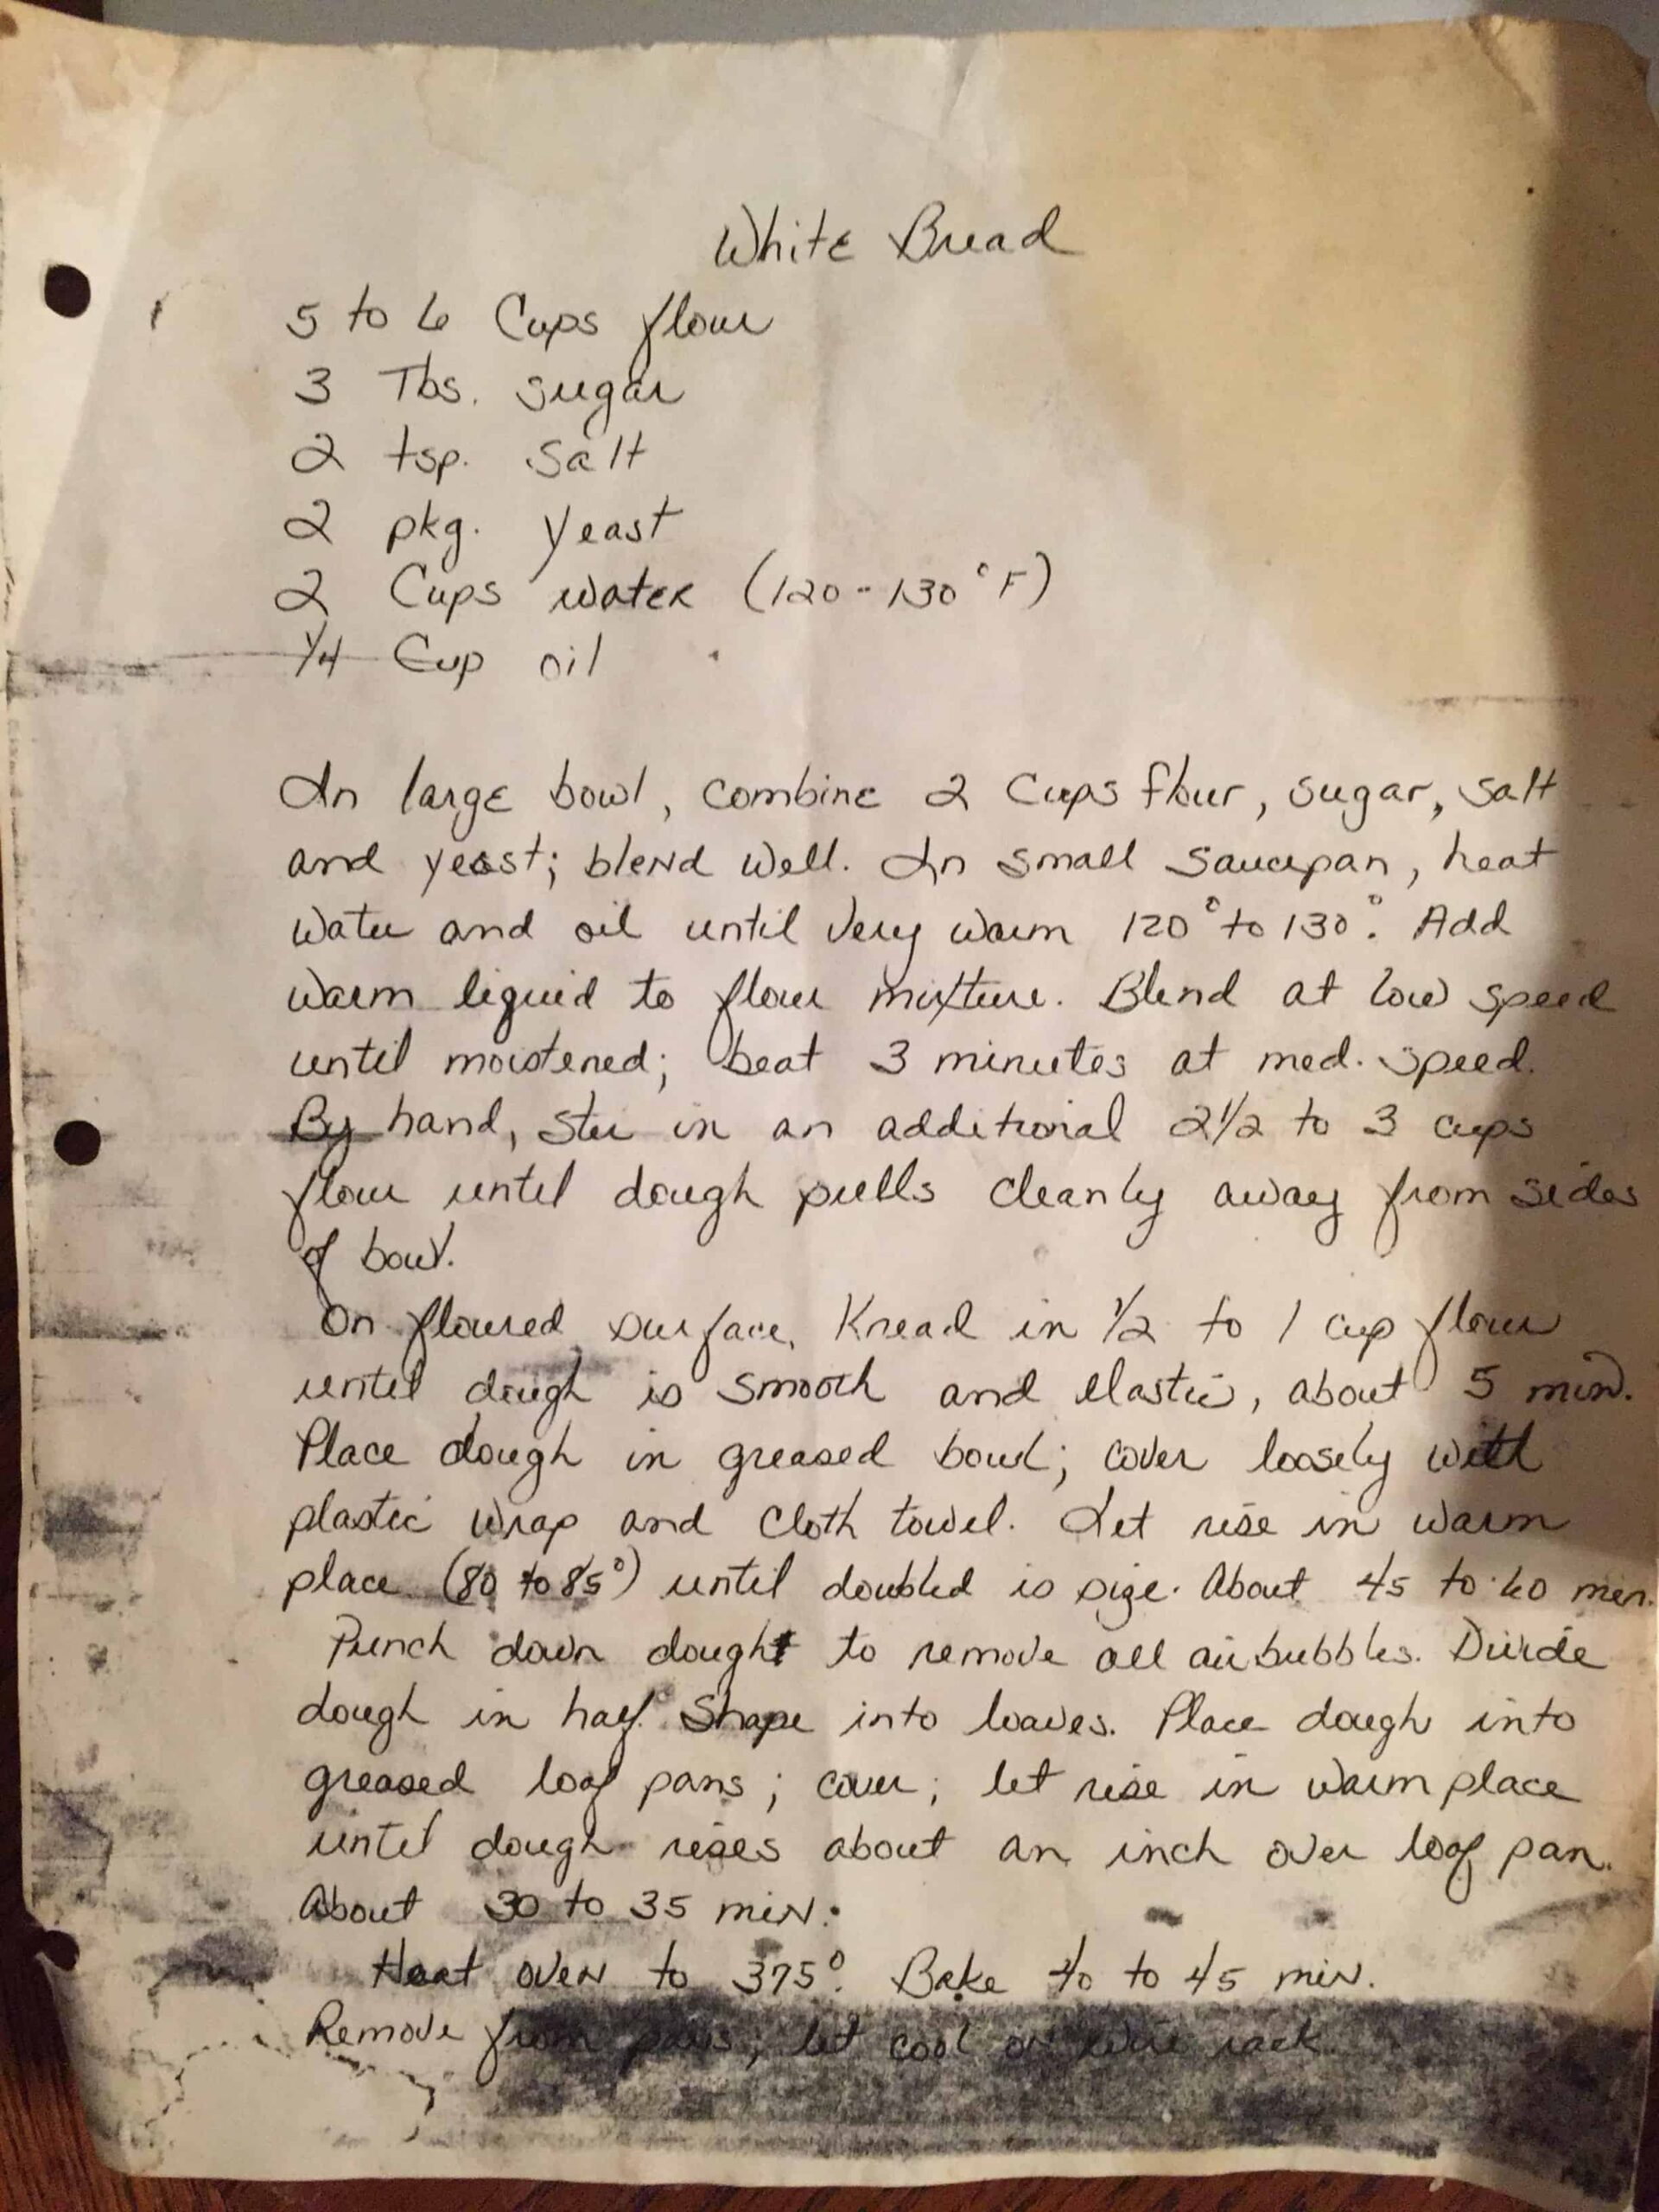 White Bread
5 to 6 Cups flour
3 Tbs. sugar
2 tsp. Salt
2 pkg. Yeast
2 Cups water (120-130°F)
1/4 Cup oil
In large bowl, combine 2 Cups flour, sugar, salt
and yeast; blend well. In small saucepan, heat
water and oil until very warm 120° to 130°. Add
warm liquid to flour mixture. Blend at low speed
until moistened; beat 3 minutes at med. speed.
By hand, stir in an additional 2 1/2 to 3 cups
flour until dough pulls cleanly away from sides
of bowl.
On floured surface, Knead in 1/2 to 1 cup flour
until dough is smooth and elastic, about 5 min.
Place dough in greased bowl; cover loosely with
plastic wrap and cloth towel. Let rise in warm
place (80 to 85°) until doubled is size. About 45 to 60 min.
Punch down dough to remove all air bubbles. Divide
dough in half. Shape into loaves. Place dough into
greased loaf pans; cover; let rise in warm place
until dough rises about an inch over loaf pan.
About 30 to 35 min.
Heat oven to 375°. Bake 40 to 45 min.
Remove from pans; let cool on wire rack.